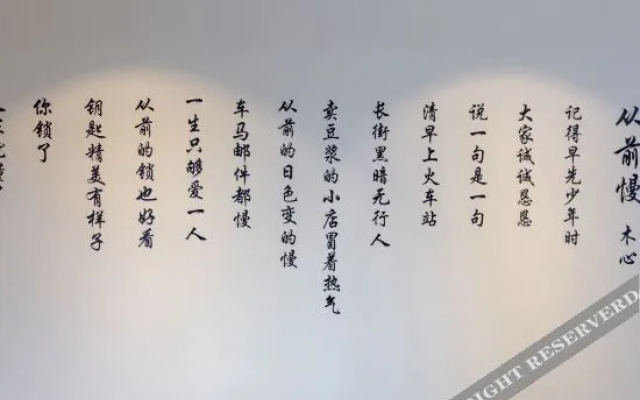 从前慢 木心
记得早先少年时
大家诚诚恳恳
说一句是一句
清早上火车站
长街黑暗无行人
卖豆浆的小店冒着热气
从前的日色变的慢
车马邮件都慢
一生只够爱一人
从前的锁也好看
钥匙精美有样子
你锁了
RIGHT RESERVERD